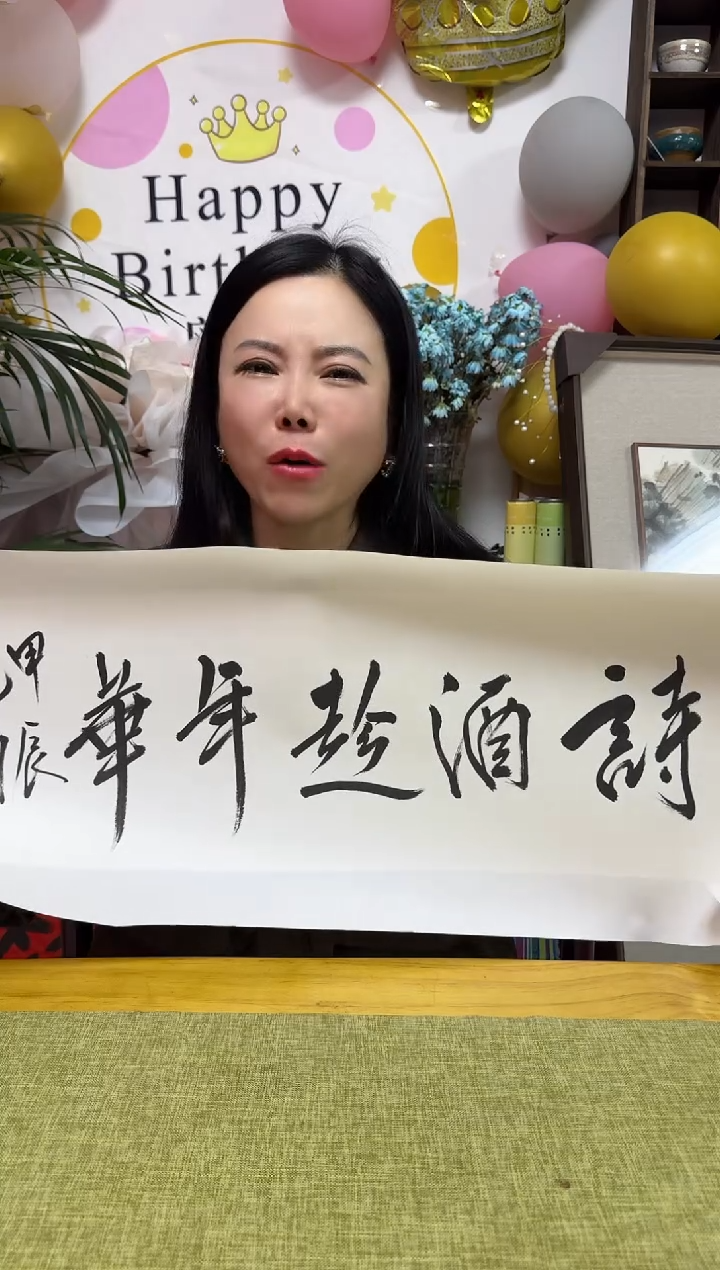 Happy
Birth
詩酒趁年華
甲辰